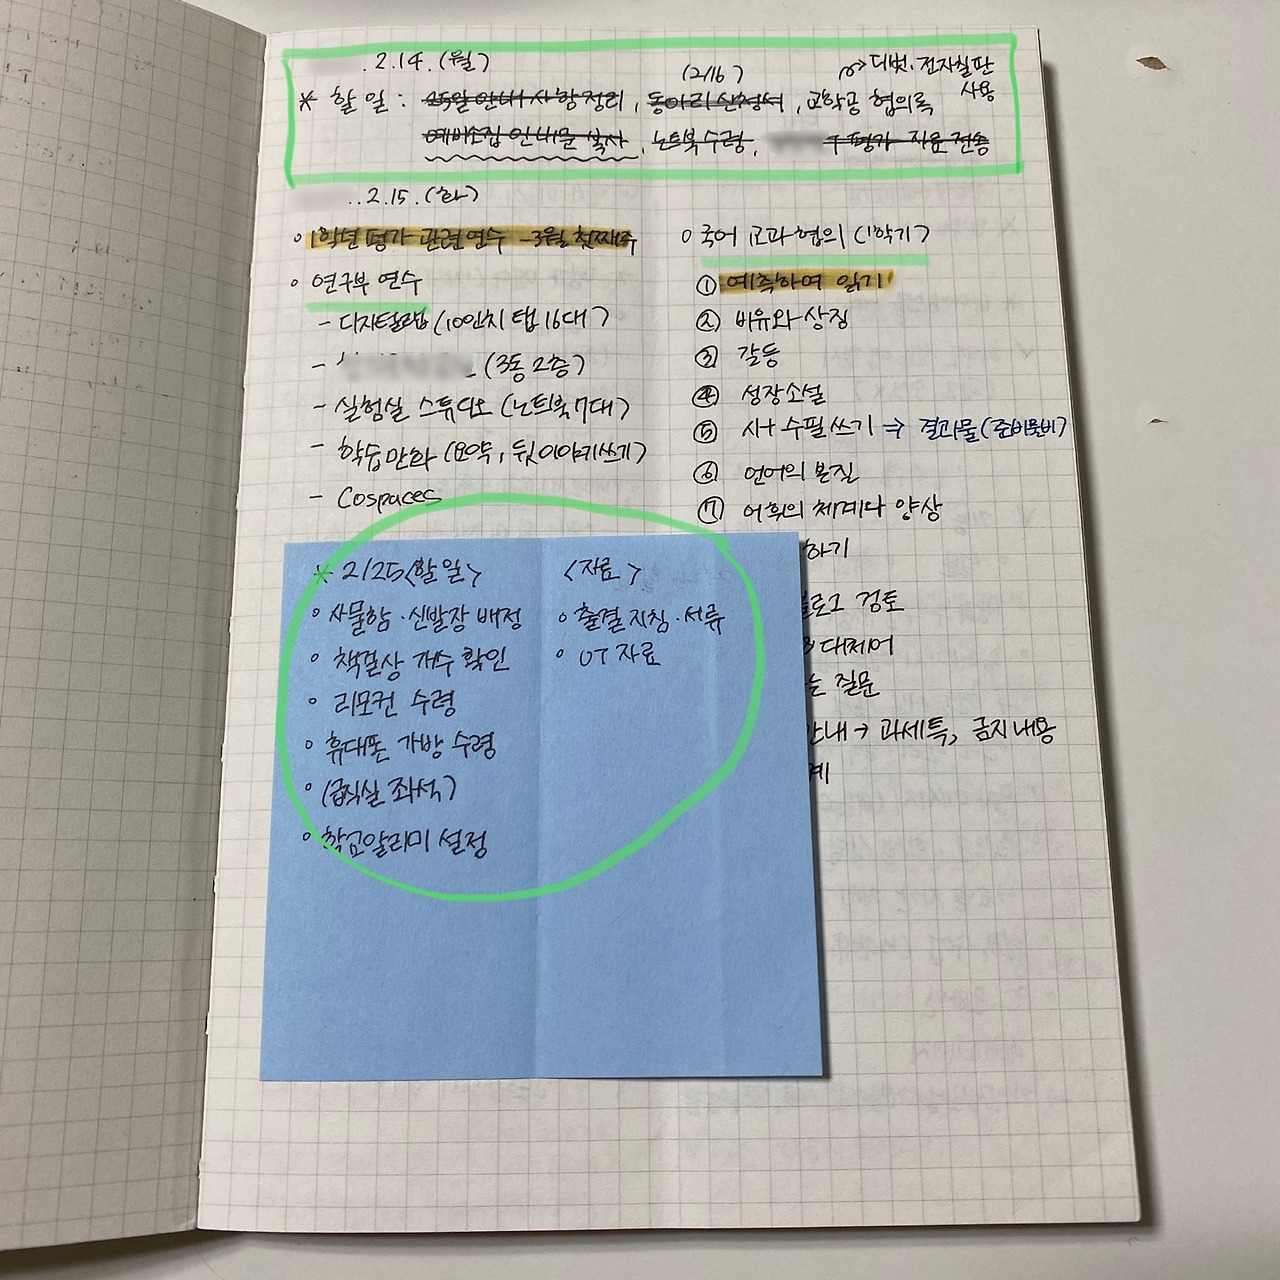 2.14.(월)
(2/16)
디벗.전자칠판
사용
* 할 일 : 15일 안내사항 정리, 동아리 신청서, 교학공 협의록
예비소집 안내문 복사, 노트북 수령, 평가 자료 전송
2.15.(화)
◦ 1학년 평가 관련 연수 - 3월 첫째주
◦ 연구부 연수
- 디지털랩 (10인치 탭 16대)
- (3동 2층)
- 실험실 스튜디오 (노트북 7대)
- 학습만화 (요약, 뒷이야기쓰기)
- Cospaces
◦ 국어 교과협의 (1학기)
① 예측하며 읽기
② 비유와 상징
③ 갈등
④ 성장소설
⑤ 시 + 수필 쓰기 ⇒ 결과물 (준비물비)
⑥ 언어의 본질
⑦ 어휘의 체계와 양상
하기
블로그 검토
대제어
는 질문
안내 → 과세특, 금지내용
계
* 2/25 <할 일>
◦ 사물함·신발장 배정
◦ 책걸상 개수 확인
◦ 리모컨 수령
◦ 휴대폰 가방 수령
◦ (급식실 좌석)
◦ 학교알리미 설정
<자료>
◦ 출결 지침·서류
◦ OT 자료